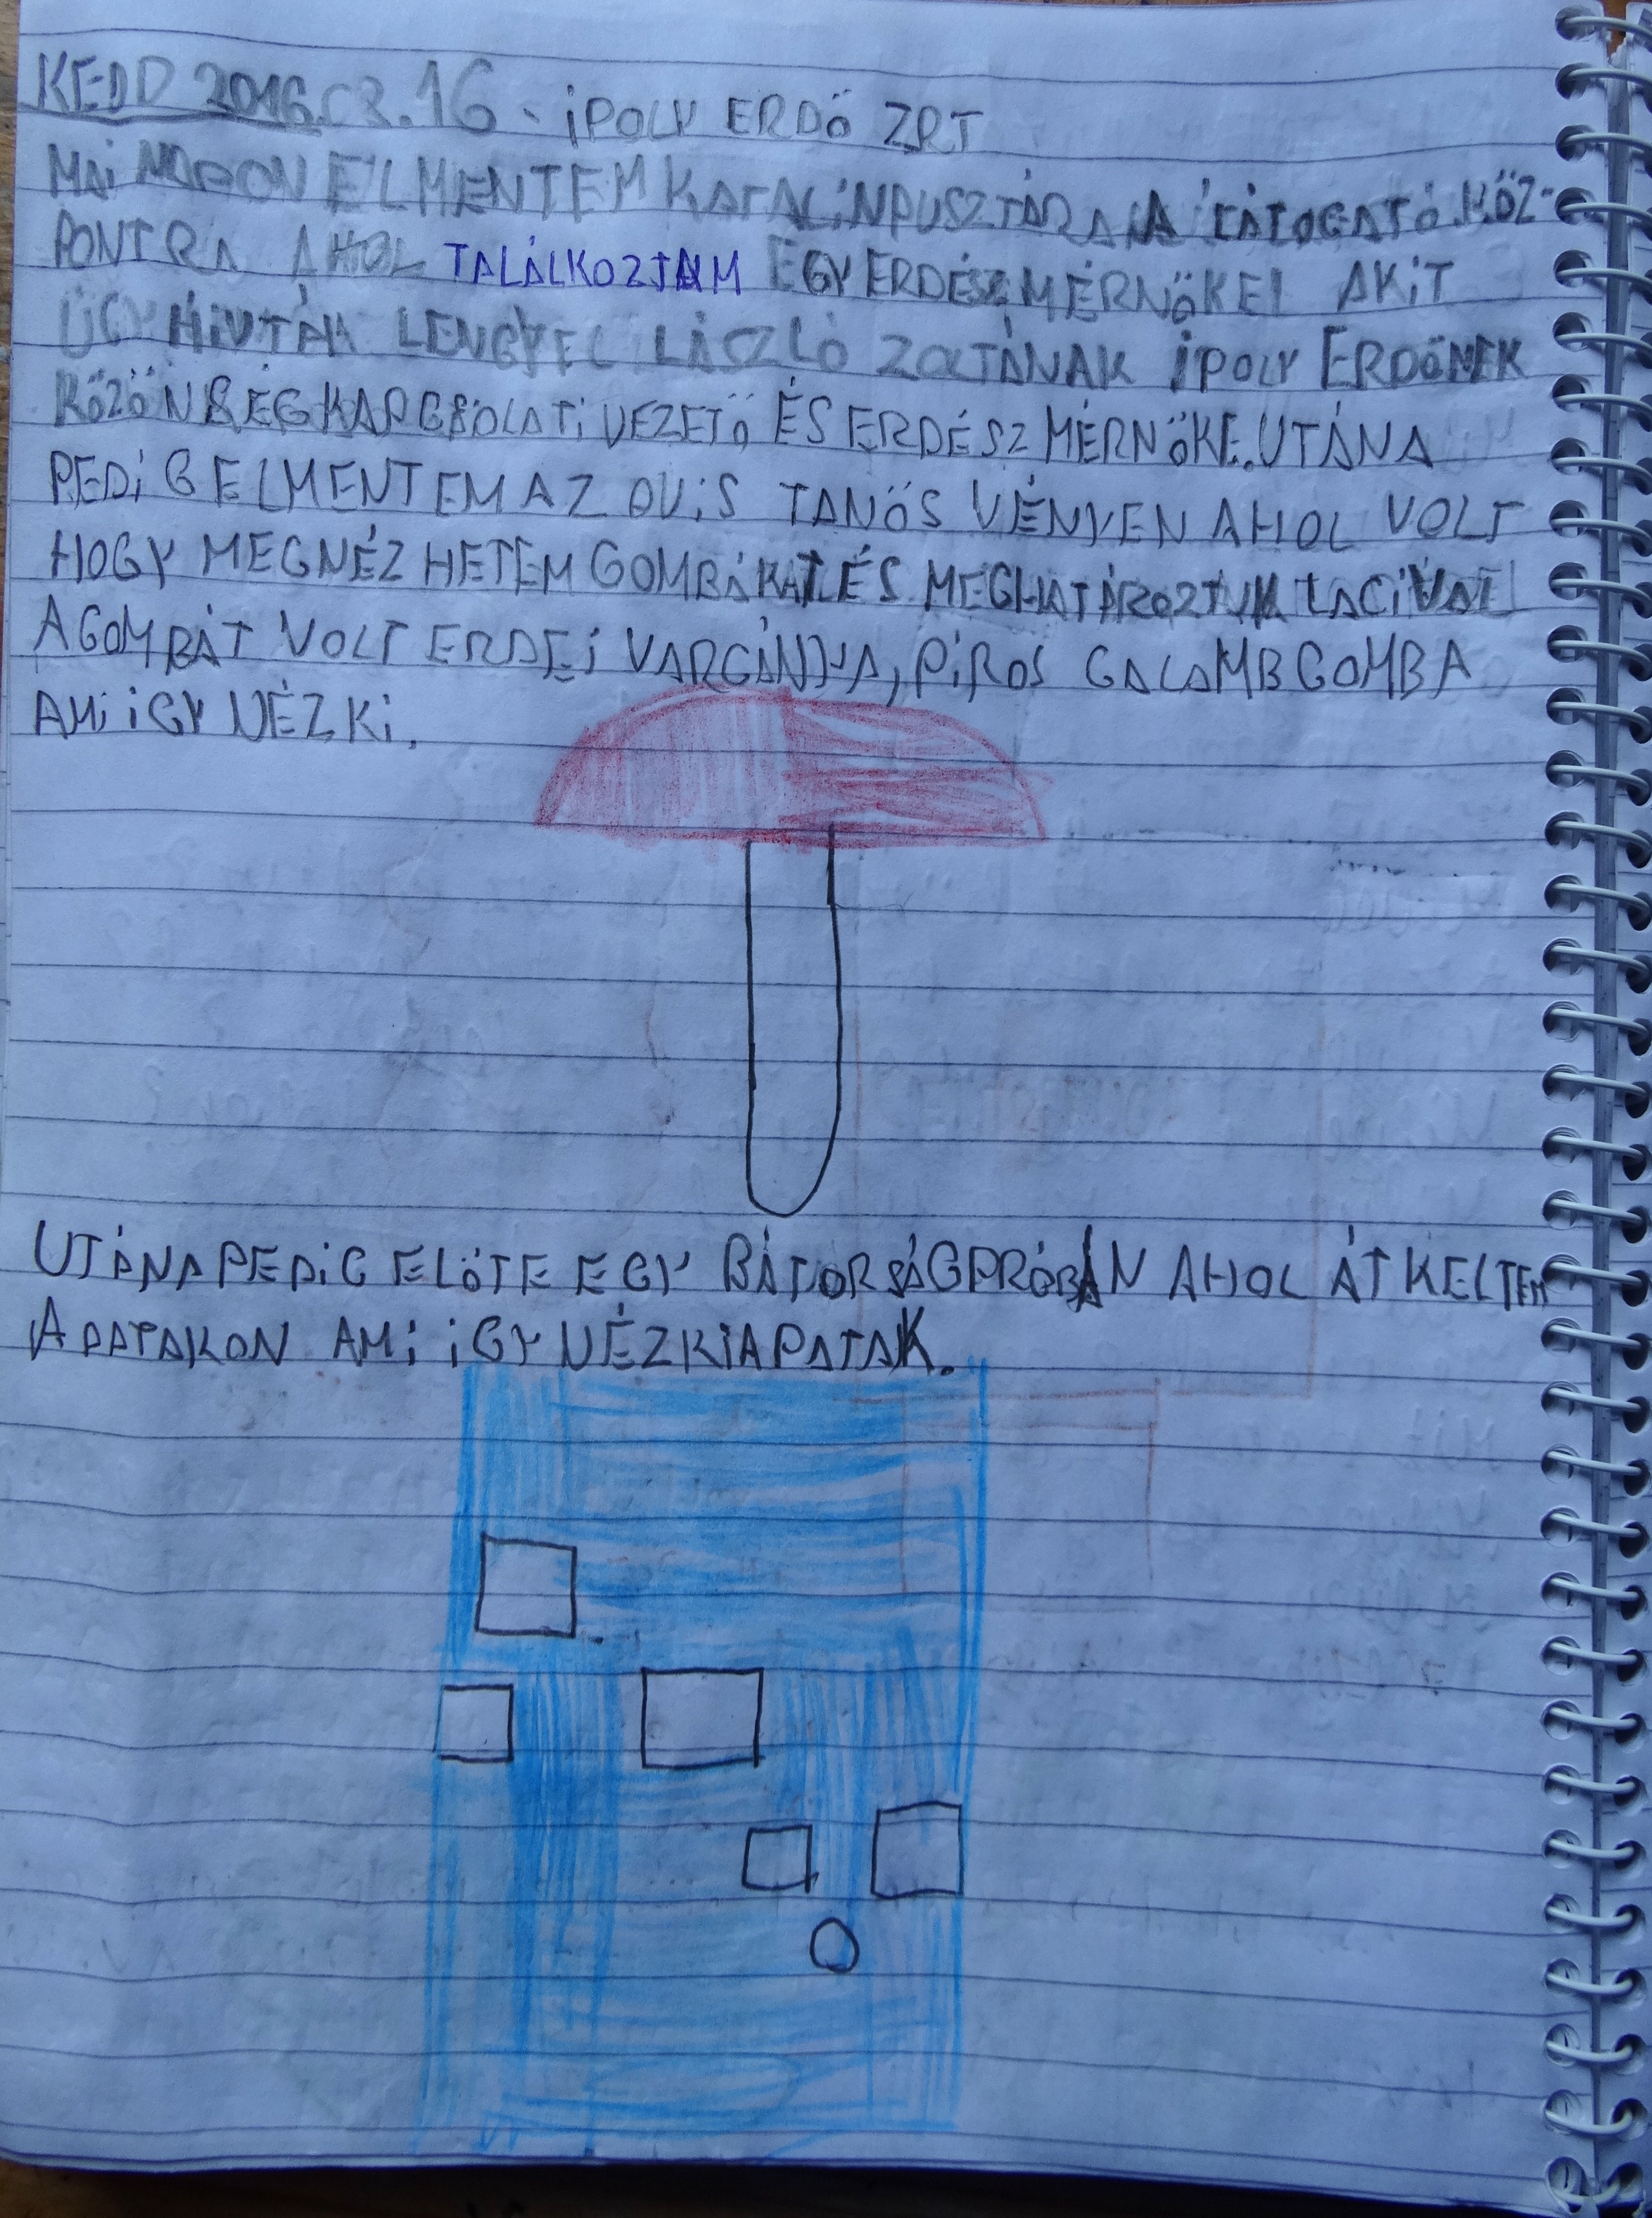 KEDD 2016.03.16 - iPOLY ERDŐ ZRT
MAi NAPON ELMENTEM KATALiNPUSZTÁRA A LÁTOGATÓ KÖZ-
PONTRA AHOL TALÁLKOZTAM EGY ERDÉSZMÉRNÖKEL AKiT
ÚGY HÍVTÁK LENGYEL LÁSZLÓ ZOLTÁNAK iPOLY ERDŐNEK
KÖZÖNSÉGKAPCSOLATi VEZETŐ ÉS ERDÉSZ MÉRNÖKE. UTÁNA
PEDiG ELMENTEM AZ OViS TANÖSVÉNYEN AHOL VOLT
HOGY MEGNÉZHETEM GOMBÁKAT ÉS MEGHATÁROZTUK LACiVAL
A GOMBÁT VOLT ERDEi VARGÁNYA, PiROS GALAMBGOMBA
AMi iGY NÉZKi.
UTÁNA PEDiG ELÖTE EGY BÁTORSÁGPRÓBÁN AHOL ÁTKELTEM
A PATAKON AMi iGY NÉZKi A PATAK.